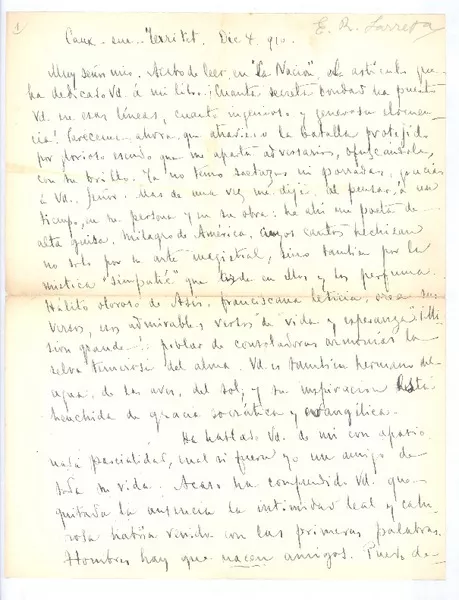 1
E. R. Larreta
Caux-sur-Territet. Dic 4. 910.
Muy señor mío. Acabo de leer, en "La Nación", el artículo que
ha dedicado Vd. á mi libro. ¡Cuánta secreta bondad ha puesto
Vd. en esas líneas, cuanto ingenioso y generosa elocuen-
cia! Paréceme ahora que atravieso la batalla protegido
por glorioso escudo que me aparta adversarios, ofuscándolos,
con su brillo. Ya no temo saetazos ni porradas, gracias
á Vd. Señor. Mas de una vez me dije, al pensar, á un
tiempo, en su persona y en su obra: he ahí un poeta de
alta guisa, milagro de América, cuyos cantos hechizan
no solo por su arte magistral, sino tambien por la
mística "simpatía" que en ellos y los perfuma.
Hálito oloroso de Asís, franciscana leticia, sus
versos, esos admirables versos de vida y esperanza! ¡Mi
sión grande! poblar de consoladoras armonías la
selva tenebrosa del alma. Vd. es tambien hermano del
agua, de las aves, del sol; y su inspiración está
henchida de gracia socrática y evangélica.
Ha hablado Vd. de mí con apasio-
nada parcialidad, cual si fuera yo un amigo de
toda su vida. Acaso ha comprendido Vd. que
quitada la ausencia la intimidad leal y calu-
rosa habría venido con las primeras palabras.
Hombres hay que nacen amigos. Puedo de-